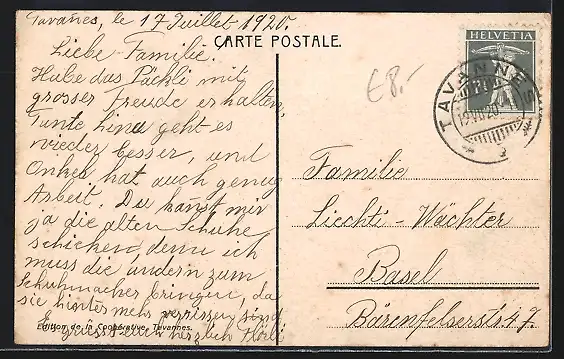 Tavanes, le 17 Juillet 1920.
CARTE POSTALE.
Liebe Familie.
Habe das Päckli mit
grosser Freude erhalten,
Tante Lina geht es
wieder besser, und
Onkel hat auch genug
Arbeit. Du kanst mir
ja die alten Schuhe
schicken, denn ich
muss die andern zum
Schuhmacher bringen, da
sie hinten mehr verrissen sind
Es grüsst euch herzlich
Edition de la Coopérative, Tavannes.
€8.-
HELVETIA
TAVANNES
19.VII.20
Familie
Liechti-Wächter
Basel
Bärenfelserstr 47.